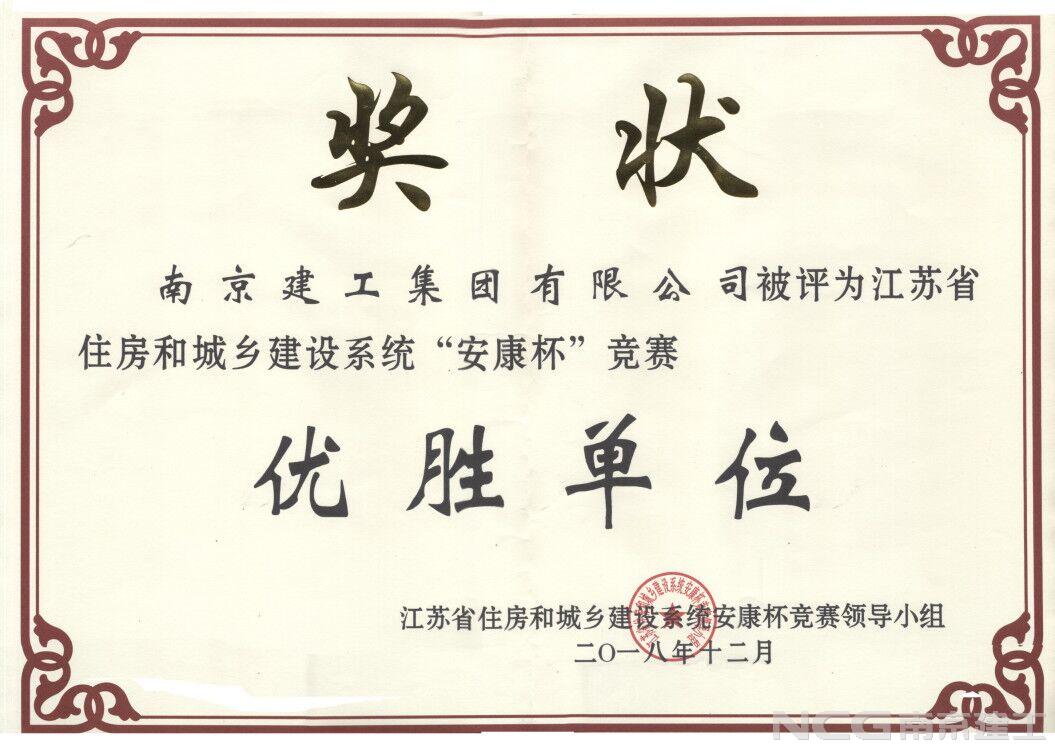 奖状
南京建工集团有限公司被评为江苏省
住房和城乡建设系统“安康杯”竞赛
优胜单位
江苏省住房和城乡建设系统安康杯竞赛领导小组
二〇一八年十二月
NCG南京建工